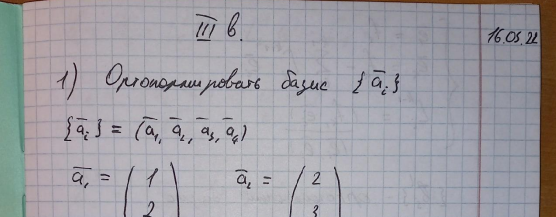 III в.
16.05.22
1) Ортонормировать базис {a̅ᵢ}
{a̅ᵢ} = (a̅₁, a̅₂, a̅₃, a̅₄)
a̅₁ = ( 1 ) a̅₂ = ( 2 )
2 3